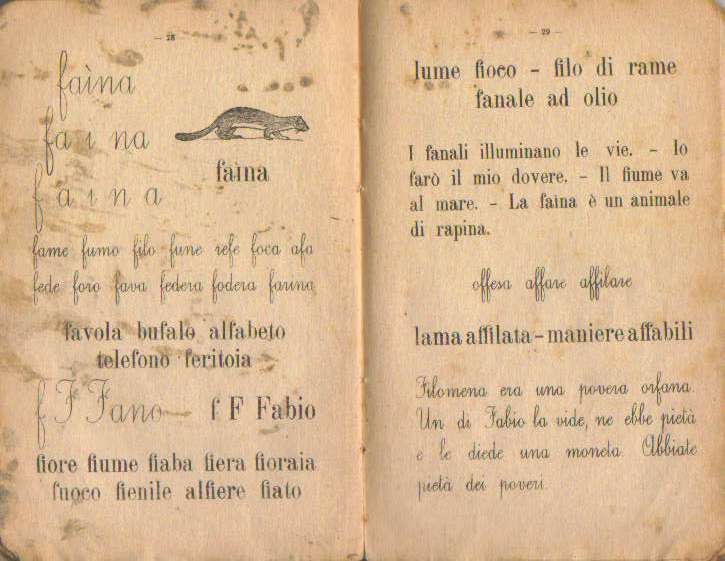 — 28
faìna
fa i na
f a i n a
faìna
fame fumo filo fune refe foca afa
fede foro fava federa fodera farina
favola bufalo alfabeto
telefono feritoia
f F Fano f F Fabio
fiore fiume fiaba fiera fioraia
fuoco fienile alfiere fiato
— 29 —
lume fioco - filo di rame
fanale ad olio
I fanali illuminano le vie. - Io
farò il mio dovere. - Il fiume va
al mare. - La faìna è un animale
di rapina.
offesa affare affilare
lama affilata - maniere affabili
Filomena era una povera orfana.
Un dì Fabio la vide, ne ebbe pietà
e le diede una moneta. Abbiate
pietà dei poveri.